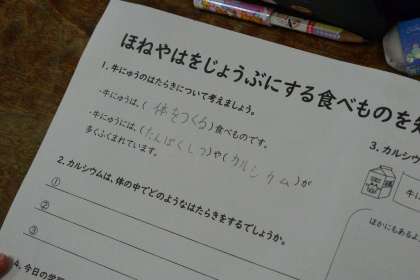 ほねやはをじょうぶにする食べものを
1. 牛にゅうのはたらきについて考えましょう。
・牛にゅうは、(体をつくる)食べものです。
・牛にゅうには、(たんぱくしつ)や(カルシウム)が
多くふくまれています。
2. カルシウムは、体の中でどのようなはたらきをするでしょうか。
①
②
③
4. 今日の学
3. カルシウ
牛に
ほかにもあるよ